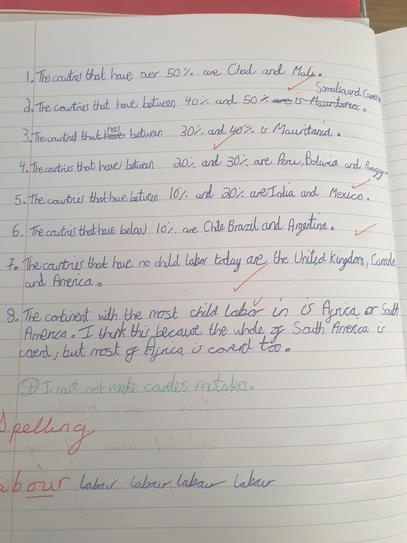 1. The coutries that have over 50% are Chad and Mali.
Somalia and
2. The coutries that have between 40% and 50% are is Mauritania.
3. The coutries that have has between 30% and 40% is Mauritania.
4. The coutries that have between 20% and 30% are Peru, Bolivia and
5. The countries that have between 10% and 20% are India and Mexico.
6. The coutries that have below 10% are Chile Brazil and Argentina.
7. The countries that have no child labor today are the United Kingdom, Canada
and America.
8. The continent with the most child labor in is Africa or South
America. I think this because the whole of South America is
coverd, but most of Africa is coverd too.
I must not make carles mistakes.
Spelling
labour labour labour labour